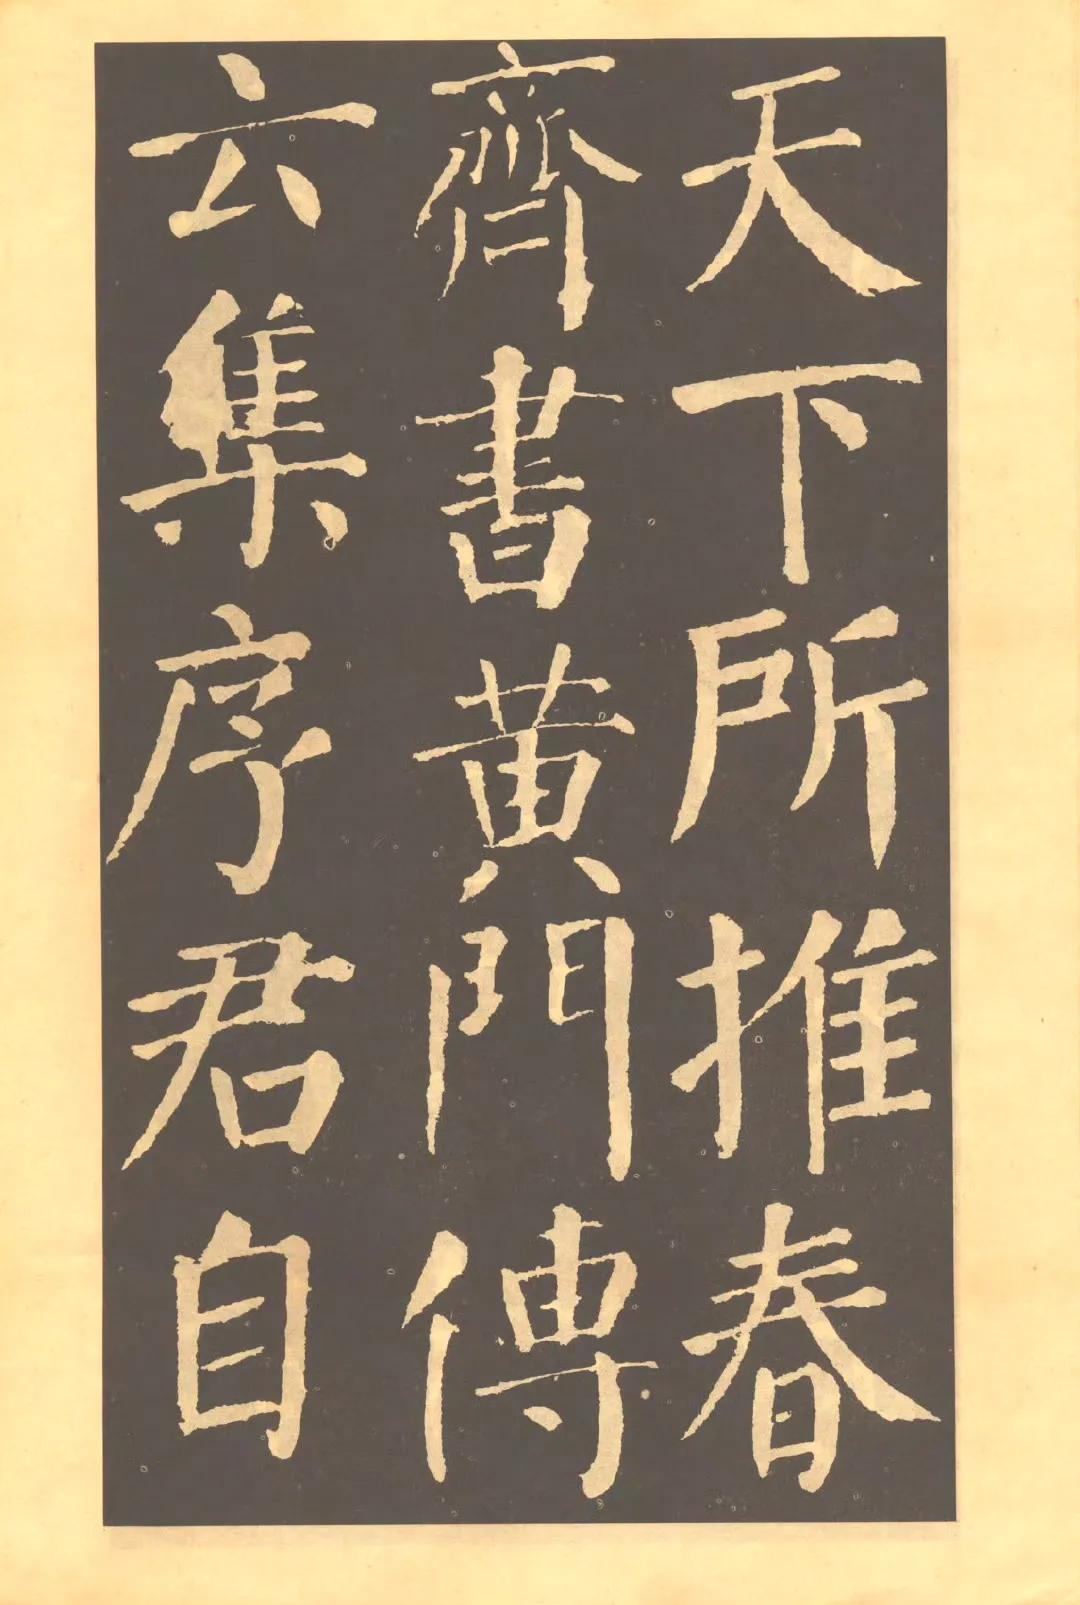 天下所推春
齊書黄門傳
云集序君自